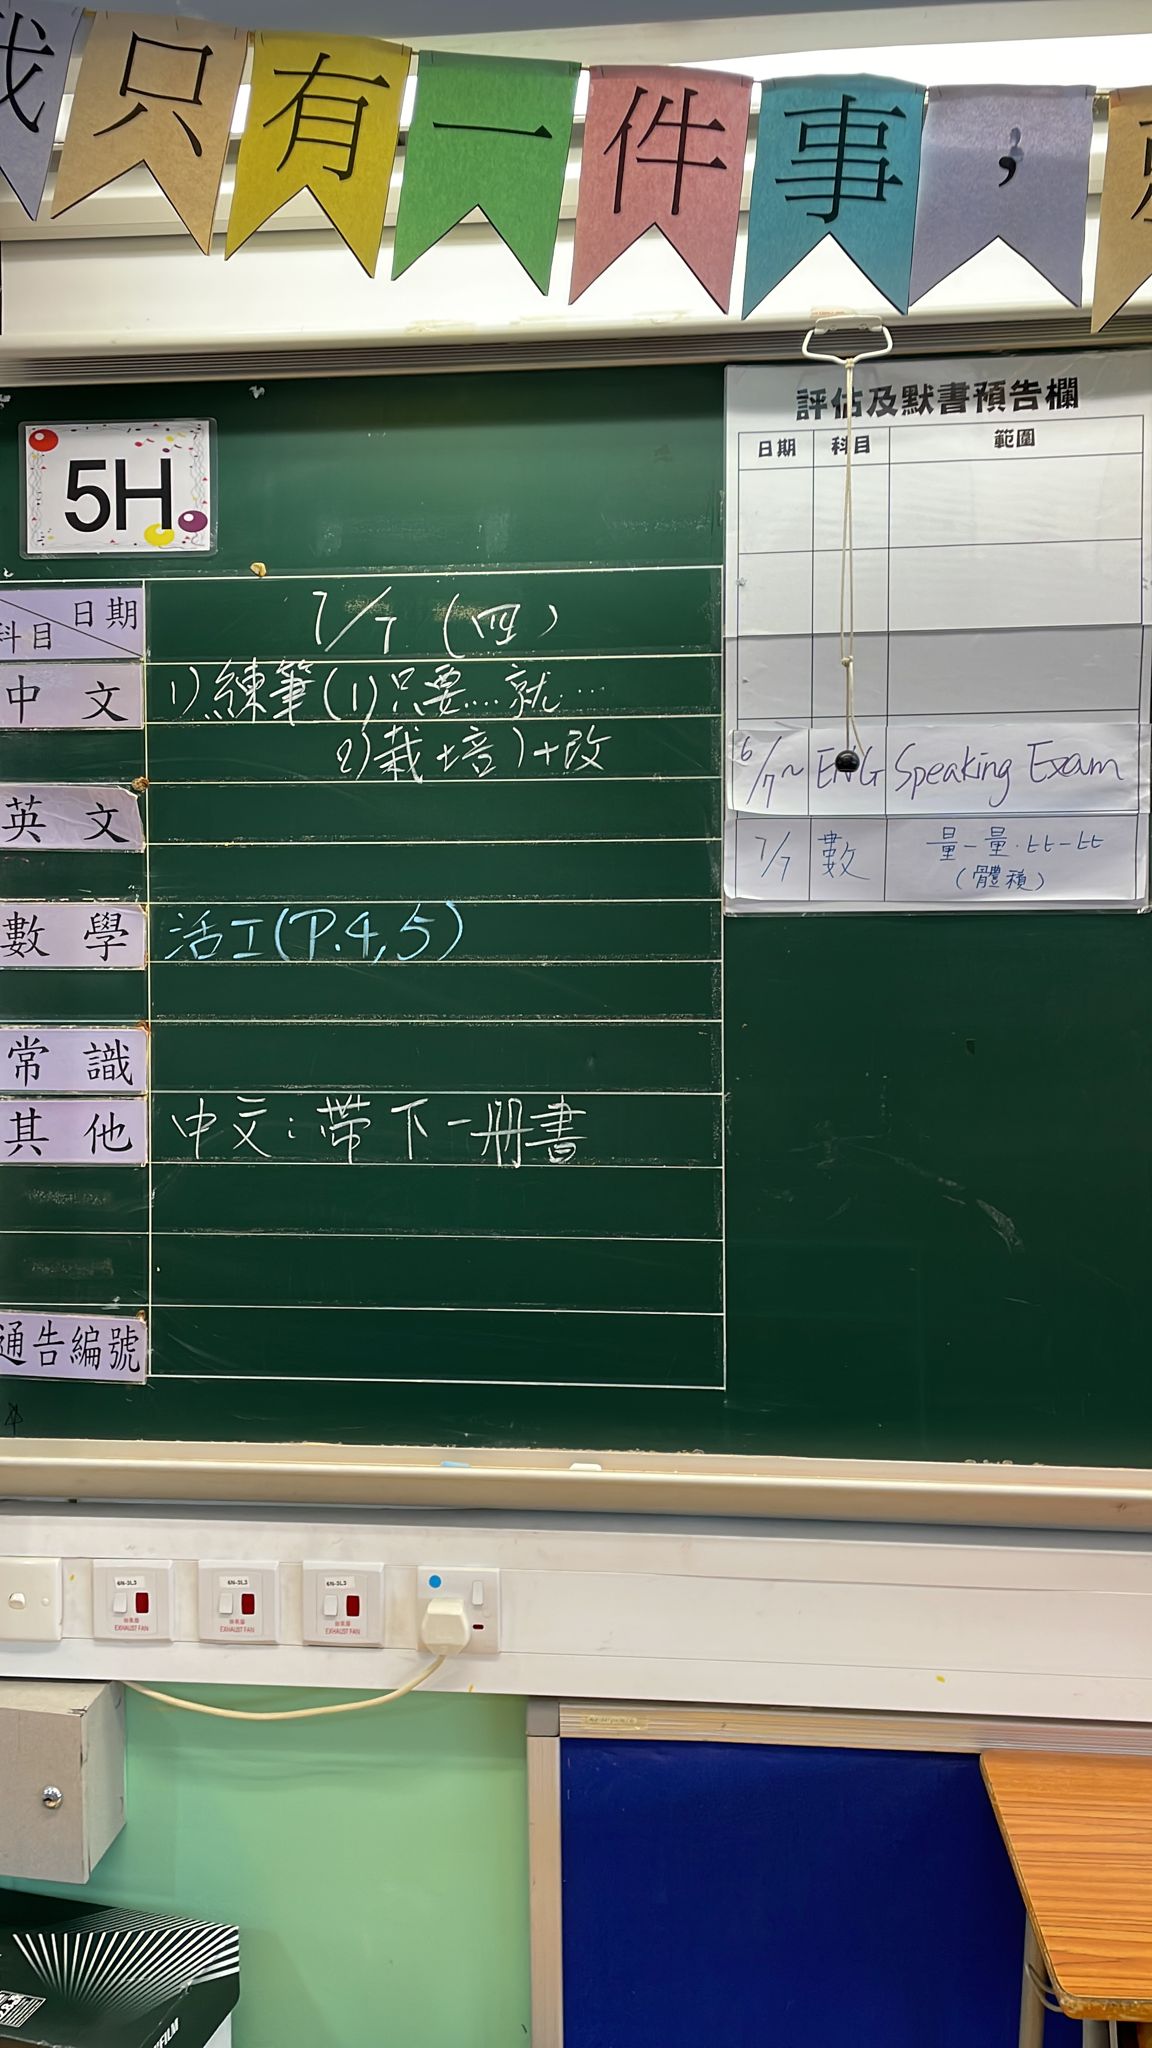 我只有一件事，
5H
評估及默書預告欄
日期 科目 範圍
6/7~ ENG Speaking Exam
7/7 數 量一量.比一比
(體積)
日期
科目
7/7 (四)
中文 1) 練筆(1)只要...就...
2)栽培)+改
英文
數學 活工(P.4,5)
常識
其他 中文:帶下一冊書
通告編號
6N-3L3
抽氣扇
EXHAUST FAN
6N-3L3
抽氣扇
EXHAUST FAN
6N-3L3
抽氣扇
EXHAUST FAN